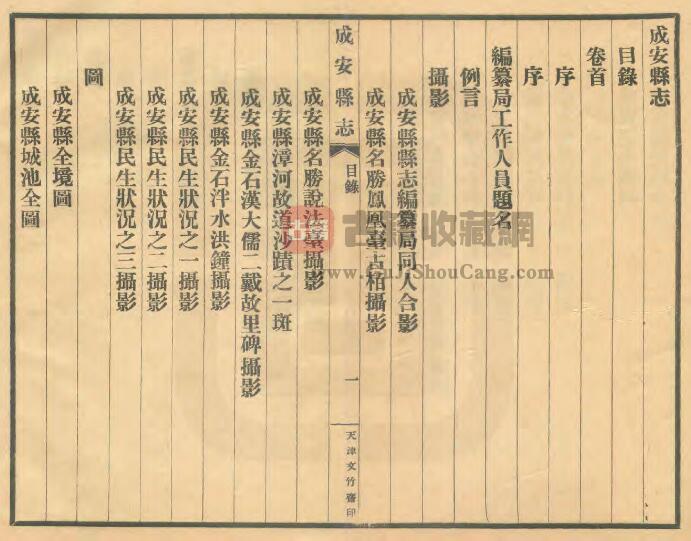 成安縣志
目錄
卷首
序
序
編纂局工作人員題名
例言
攝影
成安縣縣志編纂局同人合影
成安縣名勝鳳凰臺古柏攝影
成安縣志
目錄
一
天津文竹齋印
成安縣名勝說法臺攝影
成安縣漳河故道沙蹟之一斑
成安縣金石漢大儒二戴故里碑攝影
成安縣金石泮水洪鐘攝影
成安縣民生狀況之一攝影
成安縣民生狀況之二攝影
成安縣民生狀況之三攝影
圖
成安縣全境圖
成安縣城池全圖
古籍收藏網
www.GuJiShouCang.com